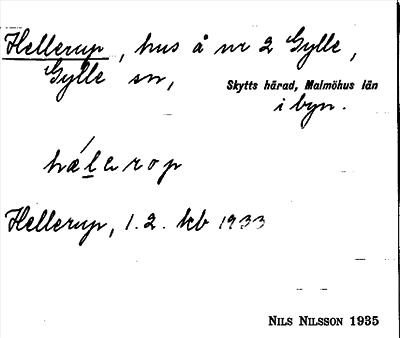 Hellerup, hus å nr 2 Gylle,
Gylle sn,
Skytts härad, Malmöhus län
i byn.
hǽlerop
Hellerup, 1.2. kb 1933
NILS NILSSON 1935